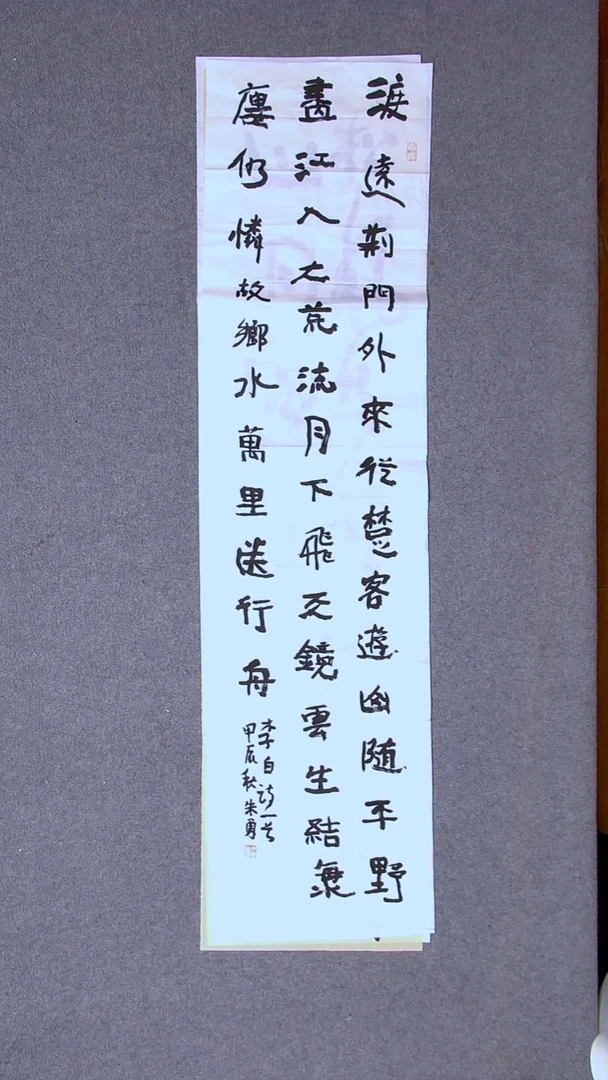 渡遠荆門外來從楚客遊山随平野
盡江入大荒流月下飛天鏡雲生結海
廔仍憐故鄉水萬里送行舟
李白诗一首
甲辰秋朱勇